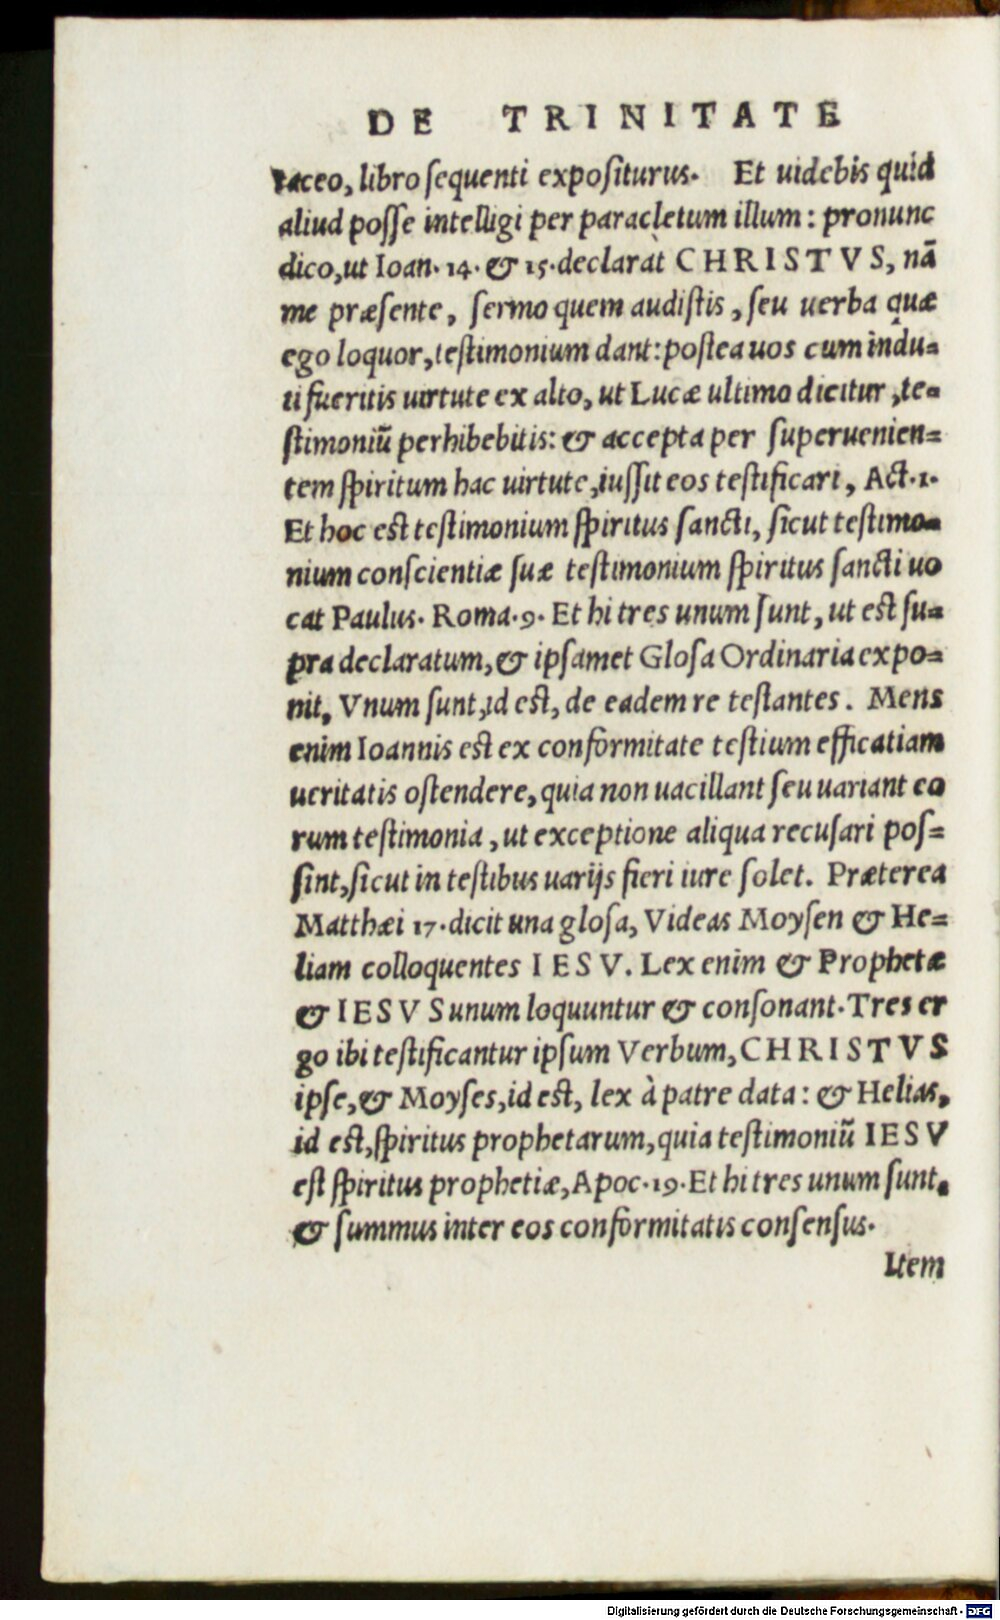 DE TRINITATE
taceo, libro sequenti expositurus. Et uidebis quid
aliud posse intelligi per paracletum illum: pronunc
dico, ut Ioan. 14. & 15. declarat CHRISTVS, nā
me præsente, sermo quem audistis, seu uerba quæ
ego loquor, testimonium dant: postea uos cum indu-
ti fueritis uirtute ex alto, ut Lucæ ultimo dicitur, te-
stimoniū perhibebitis: & accepta per superuenien-
tem spiritum hac uirtute, iussit eos testificari, Act. 1.
Et hoc est testimonium spiritus sancti, sicut testimo-
nium conscientiæ suæ testimonium spiritus sancti uo
cat Paulus. Roma. 9. Et hi tres unum sunt, ut est su-
pra declaratum, & ipsamet Glosa Ordinaria expo-
nit, Vnum sunt, id est, de eadem re testantes. Mens
enim Ioannis est ex conformitate testium efficatiam
ueritatis ostendere, quia non uacillant seu uariant eo
rum testimonia, ut exceptione aliqua recusari pos-
sint, sicut in testibus uarijs fieri iure solet. Præterea
Matthæi 17. dicit una glosa, Videas Moysen & He-
liam colloquentes IESV. Lex enim & Prophetæ
& IESVS unum loquuntur & consonant. Tres er
go ibi testificantur ipsum Verbum, CHRISTVS
ipse, & Moyses, id est, lex à patre data: & Helias,
id est, spiritus prophetarum, quia testimoniū IESV
est spiritus prophetiæ, Apoc. 19. Et hi tres unum sunt,
& summus inter eos conformitatis consensus.
Item
Digitalisierung gefördert durch die Deutsche Forschungsgemeinschaft - DFG